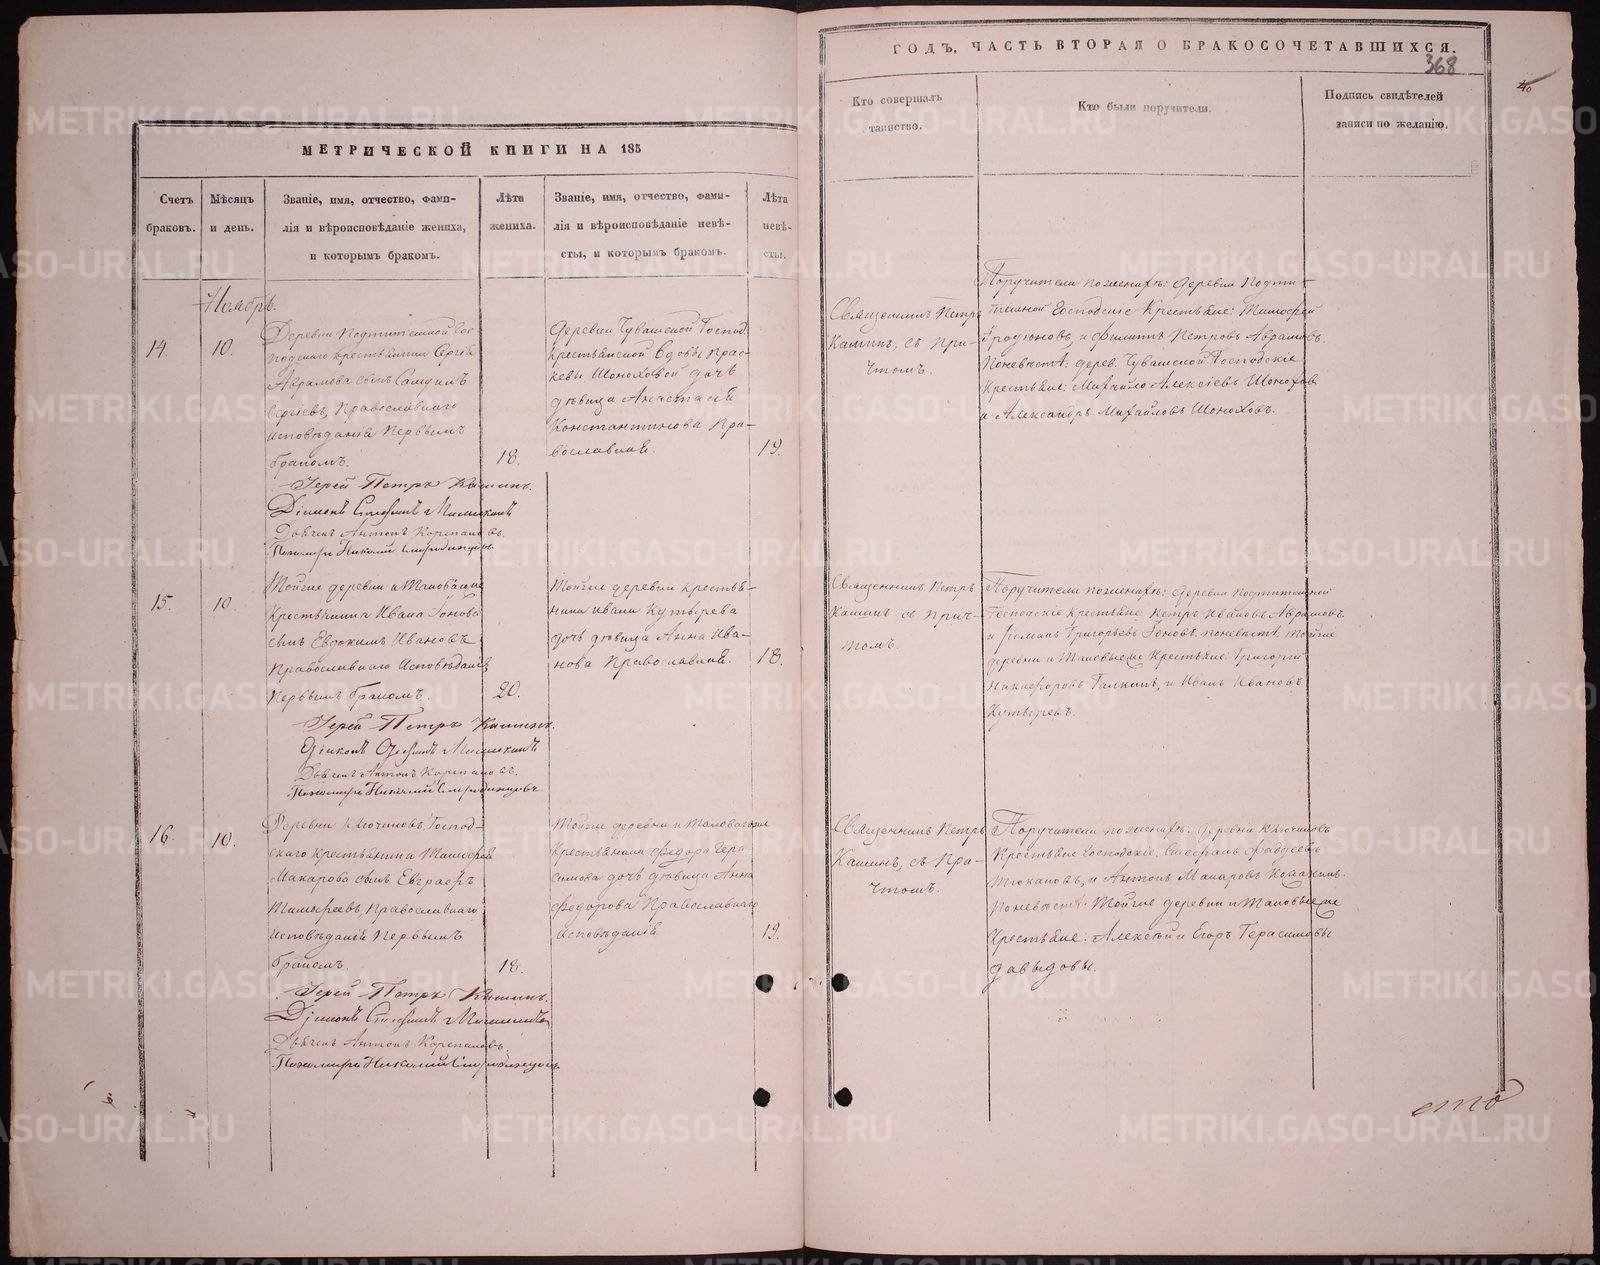 МЕТРИЧЕСКОЙ КНИГИ НА 185
Счетъ браковъ.
Мѣсяцъ и день.
Званіе, имя, отчество, фами-
лія и вѣроисповѣданіе жениха,
и которымъ бракомъ.
Лѣта
жениха.
Званіе, имя, отчество, фами-
лія и вѣроисповѣданіе невѣ-
сты, и которымъ бракомъ.
Лѣта
невѣ-
сты.
Ноябрь.
14.
10.
Деревни Подтипенной Гос-
подскаго крестьянина Сергѣя
Аврамова сынъ Самуилъ
Сергіевъ, Православнаго
исповѣданія Первымъ
бракомъ.
18.
Деревни Чувашской Господ.
крестьянской вдовы Прас-
кевы Шоноховой дочь
дѣвица Анастасія
Константинова Пра-
вославная.
19.
Іерей Петръ Кашинъ.
Діаконъ
Дьячекъ Антонъ Корепановъ.
Пономарь Николай
15.
10.
Тойже деревни
Крестьянина Ивана Іонова
сынъ Евдокимъ Ивановъ
Православнаго Исповѣданія
Первымъ бракомъ.
20.
Тойже деревни крестья-
нина Ивана Кутырева
дочь дѣвица Анна Ива-
нова Православная.
18.
Іерей Петръ Кашинъ.
Діаконъ
Дьячекъ Антонъ Корепановъ.
Пономарь Николай
16.
10.
Деревни Ключиковъ Господ-
скаго крестьянина Тимофея
Макарова сынъ Евграфъ
Тимофеевъ, Православнаго
исповѣданія Первымъ
бракомъ.
18.
Тойже деревни
Крестьянина Федора Гера-
симова дочь дѣвица Анна
Федорова Православнаго
исповѣданія
19.
Іерей Петръ Кашинъ.
Діаконъ
Дьячекъ Антонъ Корепановъ.
Пономарь Николай
ГОДЪ, ЧАСТЬ ВТОРАЯ О БРАКОСОЧЕТАВШИХСЯ.
368
Кто совершалъ
таинство.
Кто были поручители.
Подпись свидѣтелей
записи по желанію.
Священникъ Петръ
Кашинъ, съ При-
чтомъ.
Поручители по женихѣ: деревни Подти-
пенной Господскіе Крестьяне: Тимофей
Іродіоновъ, и Филипъ Петровъ Аврамовъ.
По невѣстѣ: дерев. Чувашской Господскіе
крестьяне: Михайло Алексіевъ Шоноховъ
и Александръ Михайловъ Шоноховъ.
Священникъ Петръ
Кашинъ съ Прич-
томъ.
Поручители по женихѣ: деревни Подтипенной
Господскіе крестьяне Петръ Ивановъ Аврамовъ.
и Романъ Григорьевъ Іоновъ, по невѣстѣ Тойже
деревни Крестьяне: Григорій
Никифоровъ Галкинъ, и Иванъ Ивановъ
Кутыревъ.
Священникъ Петръ
Кашинъ, съ При-
чтомъ.
Поручители по женихѣ: деревни Ключиковъ
Крестьяне Господскіе: Фаддеевъ
Тюкановъ, и Антонъ Макаровъ
По невѣстѣ: Тойже деревни
Крестьяне: Алексѣй и Егоръ Герасимовы
Давыдовы.
сто
METRIKI.GASO-URAL.RU